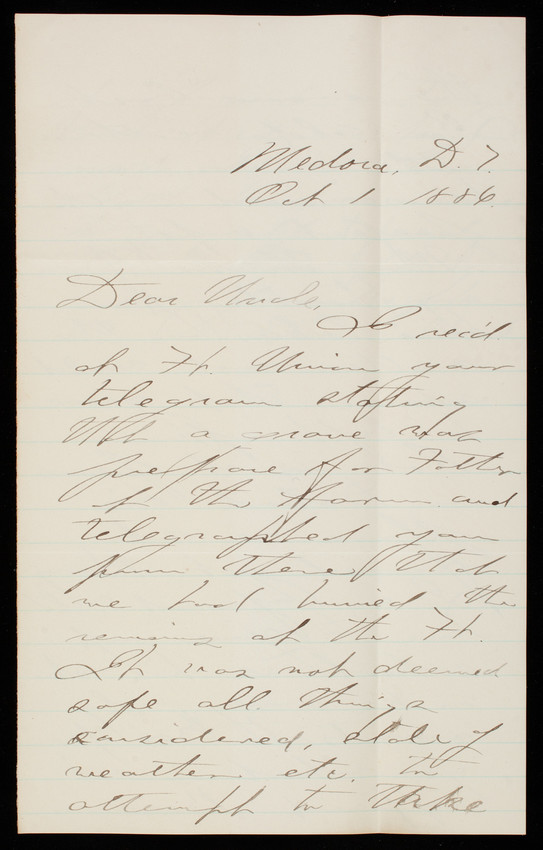 Medora, D.T.
Oct 1 1886.
Dear Uncle,
I rec'd
at Ft. Union your
telegram stating
that a grave was
prepare for Father
at the Farm and
telegraphed you
from there that
we had buried the
remains at the Ft.
It was not deemed
safe all things
considered, state of
weather etc. to
attempt to take